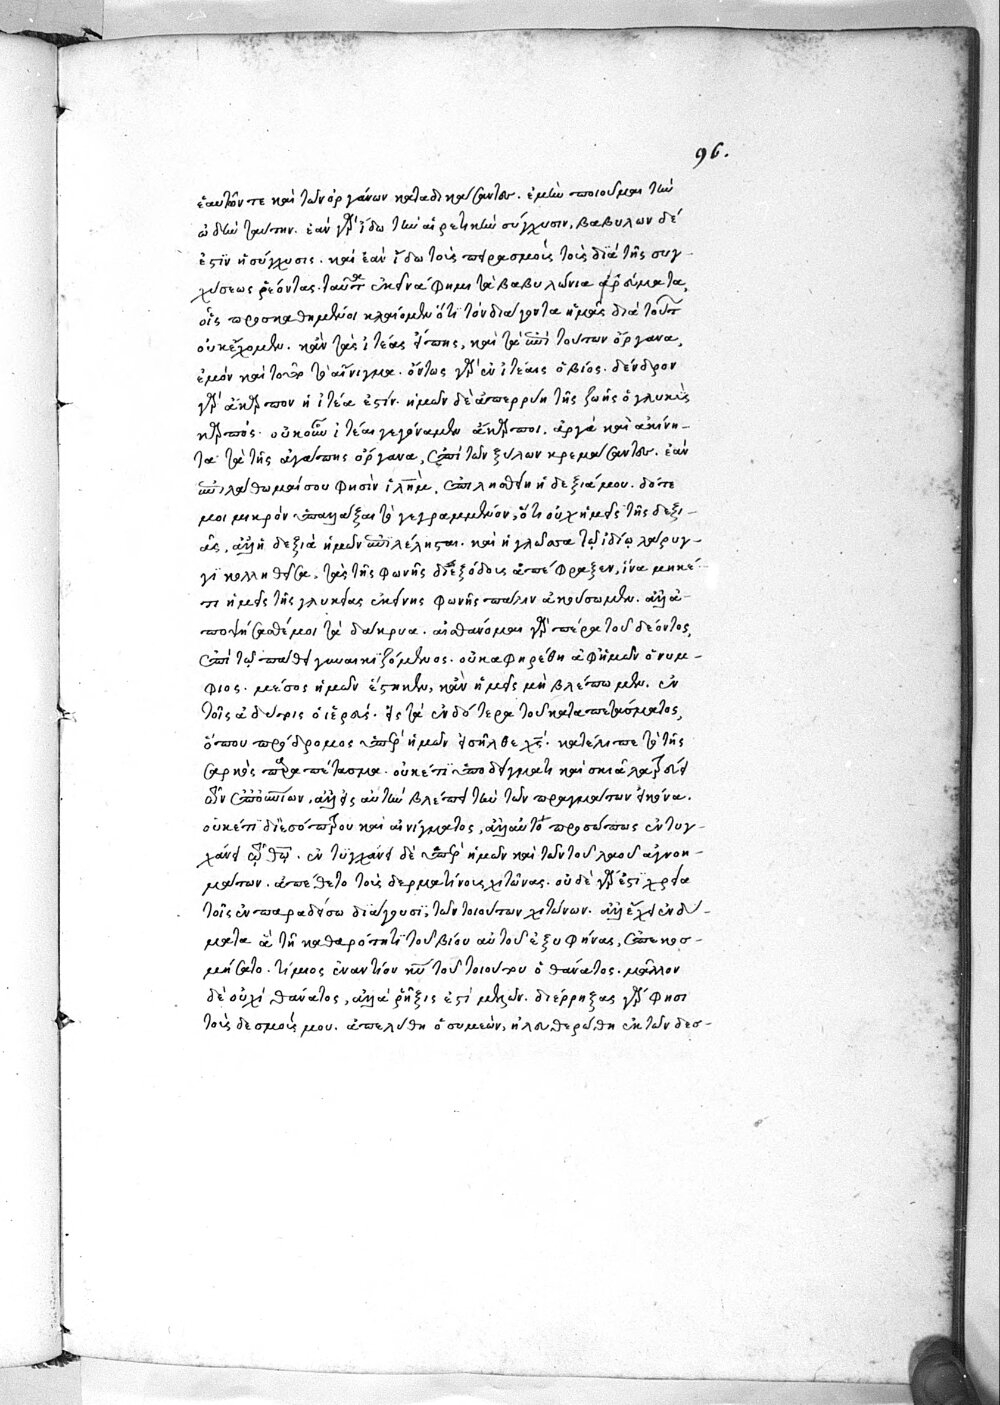 ἑαυτῶν τε καὶ τῶν ὀργάνων καταδικάσαντες. ἐμὴν ποιοῦμαι τὴν
ᾠδὴν ταύτην. ἐὰν γὰρ ἴδω τὴν αἱρετικὴν σύγχυσιν, βαβυλὼν δέ
ἐστιν ἡ σύγχυσις. καὶ ἐὰν ἴδω τοὺς πειρασμοὺς τοὺς διὰ τῆς συγ-
χύσεως ῥέοντας. ταῦτα ἐκεῖνά φημι τὰ βαβυλώνια ῥεύματα,
οἷς προσκαθήμενοι κλαίομεν ὅτι τὸν διάγοντα ἡμᾶς διὰ τούτων
οὐκ ἔχομεν. κἂν τὰς ἰτέας εἴπης, καὶ τὰ ἐπὶ τούτων ὄργανα,
ἐμὸν καὶ τοῦτο τὸ αἴνιγμα. ὄντως γὰρ ἐν ἰτέαις ὁ βίος. δένδρον
γὰρ ἄκαρπον ἡ ἰτέα ἐστίν. ἡμῶν δὲ ἀπερρύη τῆς ζωῆς ὁ γλυκὺς
καρπός. οὐκοῦν ἰτέαι γεγόναμεν ἄκαρποι. ἀργὰ καὶ ἀκίνη-
τα τὰ τῆς ἀγάπης ὄργανα, ἐπὶ τῶν ξύλων κρεμάσαντες. ἐὰν
ἐπιλάθωμαί σου φησὶν ἱλημ, ἐπιλησθείη ἡ δεξιά μου. δότε
μοι μικρὸν ὑπαλλάξαι τὸ γεγραμμένον, ὅτι οὐχ ἡμεῖς τῆς δεξι-
ᾶς, ἀλλ' ἡ δεξιὰ ἡμῶν ἐπιλέλησται. καὶ ἡ γλῶσσα τῷ ἰδίῳ λάρυγ-
γι κολληθεῖσα, τὰς τῆς φωνῆς διεξόδους ἀπέφραξεν, ἵνα μηκέ-
τι ἡμεῖς τῆς γλυκείας ἐκείνης φωνῆς πάλιν ἀκούσωμεν. ἀλλ' ἀ-
ποψήσασθέ μοι τὰ δάκρυα. αἰσθάνομαι γὰρ πέρα τοῦ δέοντος,
ἐπὶ τῷ πάθει γυναικιζόμενος. οὐκ ἀφηρέθη ἀφ' ἡμῶν ὁ νυμ-
φίος. μέσος ἡμῶν ἕστηκεν, κἂν ἡμεῖς μὴ βλέπωμεν. ἐν
τοῖς ἀδύτοις ὁ ἱερεύς. εἰς τὰ ἐνδότερα τοῦ καταπετάσματος,
ὅπου πρόδρομος ὑπὲρ ἡμῶν εἰσῆλθε χς. κατέλιπε τὸ τῆς
σαρκὸς παραπέτασμα. οὐκέτι ὑποδείγματι καὶ σκιᾷ λατρεύει
τῶν ἐπουρανίων, ἀλλ' εἰς αὐτὴν βλέπει τὴν τῶν πραγμάτων εἰκόνα.
οὐκέτι δι' ἐσόπτρου καὶ αἰνίγματος, ἀλλ' αὐτοπροσώπως ἐντυγ-
χάνει τῷ θῷ. ἐντυγχάνει δὲ ὑπὲρ ἡμῶν καὶ τῶν τοῦ λαοῦ ἀγνοη-
μάτων. ἀπέθετο τοὺς δερματίνους χιτῶνας. οὐδὲ γὰρ ἔστι χρεία
τοῖς ἐν παραδείσω διάγουσι, τῶν τοιούτων χιτώνων. ἀλλ' ἔχει ἐνδύ-
ματα ἃ τῇ καθαρότητι τοῦ βίου αὐτοῦ ἐξυφήνας, ἐπεκοσ-
μήσατο. τίμιος ἐναντίον κυ τοῦ τοιούτου ὁ θάνατος. μᾶλλον
δὲ οὐχὶ θάνατος, ἀλλὰ ῥῆξις ἐστὶ δεσμῶν. διέρρηξας γάρ φησι
τοὺς δεσμούς μου. ἀπελύθη ὁ συμεών, ἠλευθερώθη ἐκ τῶν δεσ-